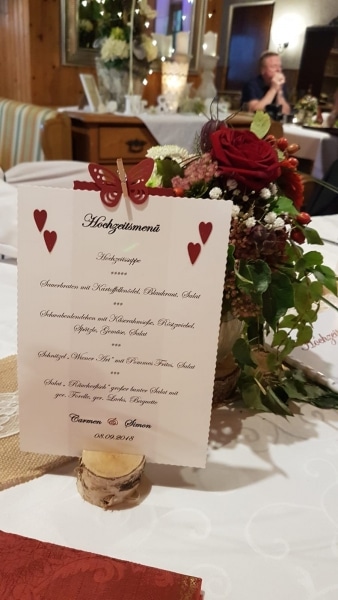 Hochzeitsmenü
Hochzeitssuppe
*****
Sauerbraten mit Kartoffelknödel, Blaukraut, Salat
***
Schweinelendchen mit Käserahmsoße, Röstzwiebel,
Spätzle, Gemüse, Salat
***
Schnitzel „Wiener Art" mit Pommes Frites, Salat
***
Salat „ großer bunter Salat mit
ger. Forelle, ger. Lachs, Baguette
Carmen & Simon
08.09.2018